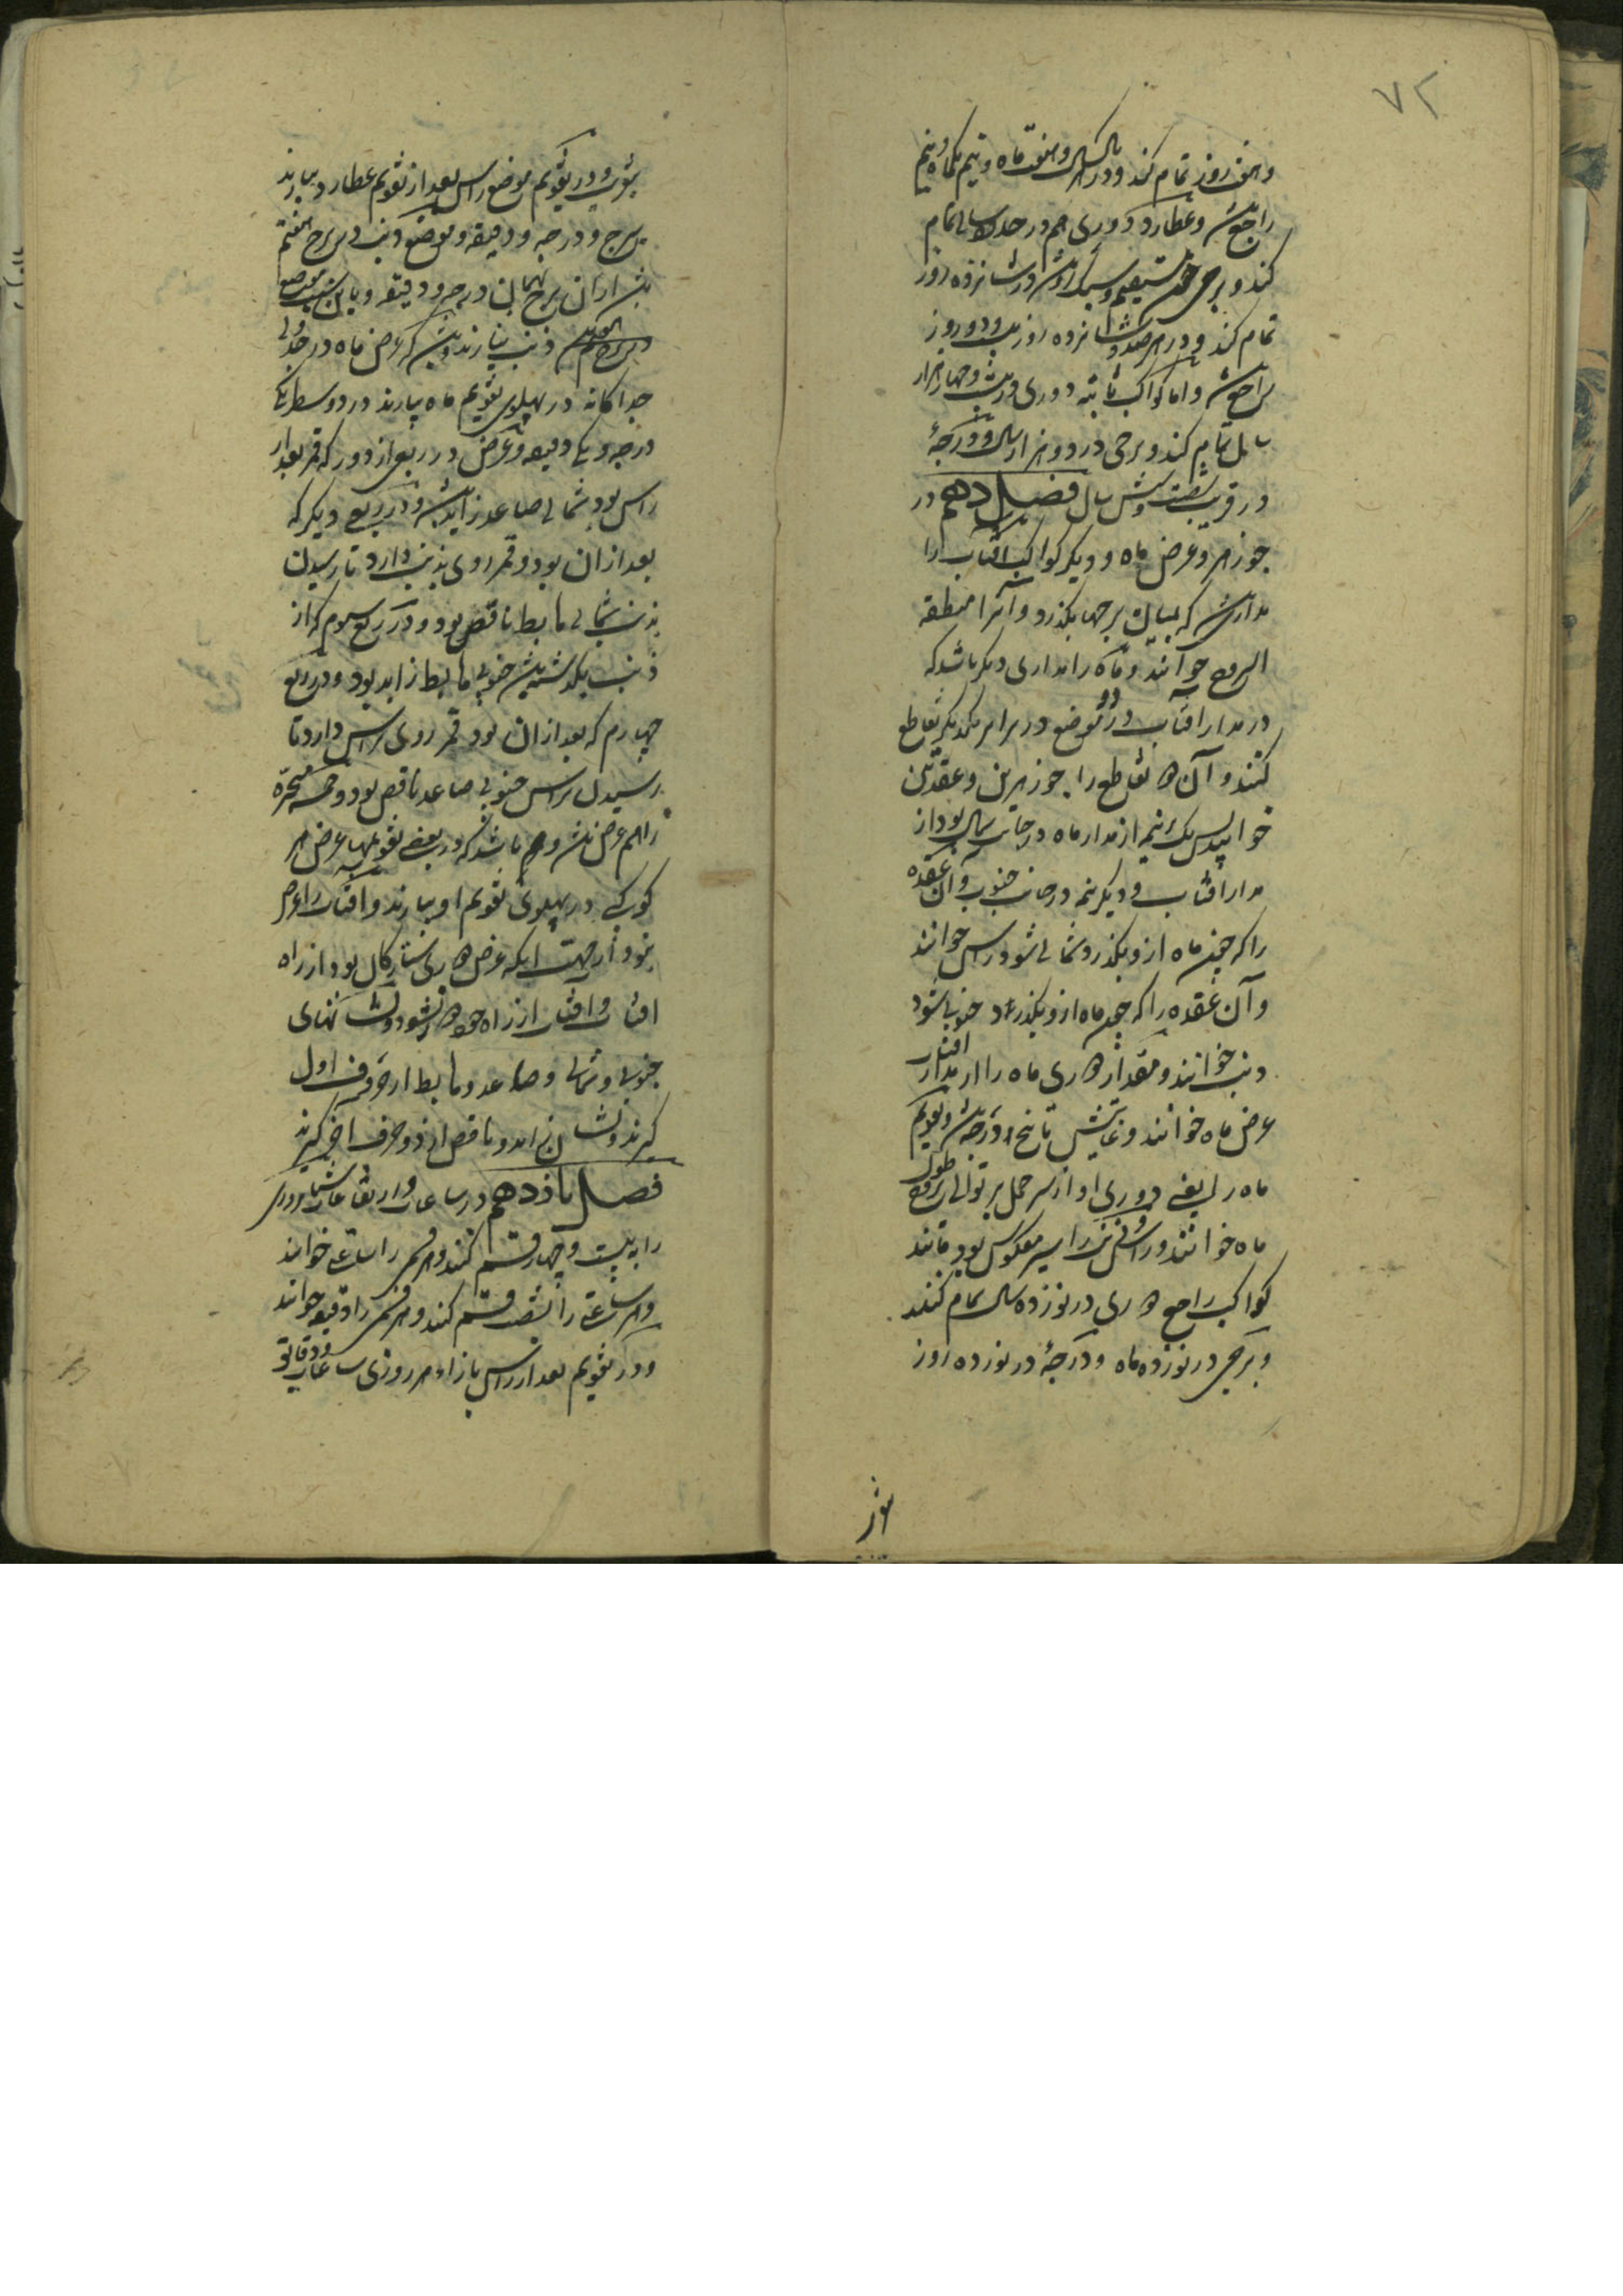 ۷۲
و هفت روز تمام کند و در هر سال و هفت ماه و نیم یکماه و نیم
راجع باشد و عطارد دوری هم در حد یک سال تمام
کند و برجی چون مستقیم و سبک رو باشد در شانزده روز
تمام کند و در هر صد و شانزده روز بیست و دو روز
راجع باشد و اما کواکب ثابته دوری در بیست و چهار هزار
سال تمام کند و برجی در دو هزار سال و درجهٔ
در قریب شصت و شش سال فصل دهم در
جوزهر و عرض ماه و دیگر کواکب آفتاب را
مداریست که بمیان برجها بگذرد و آنرا منطقه
البروج خوانند و ماه را مداری دیگر باشد که
در مدار آفتاب در دو موضع در برابر یکدیگر تقاطع
کنند و آن دو تقاطع را جوزهرین و عقدتین
خوانند پس یک نیم از مدار ماه در جانب شمال بود از
مدار آفتاب و دیگر نیم در جانب جنوب و آن عقده
را که چون ماه ازو بگذرد شمالی شود راس خوانند
و آن عقده را که چون ماه ازو بگذرد جنوبی شود
ذنب خوانند و مقدار دوری ماه را از مدار آفتاب
عرض ماه خوانند و غایتش تا پنج درجه باشد و تقویم
ماه را یعنی دوری او از سر حمل بر توالی بروج طول
ماه خوانند و راس و ذنب را سیر معکوس بود مانند
کواکب راجع دوری در نوزده سال تمام کنند
و برجی در نوزده ماه و درجهٔ در نوزده روز
بتوز
و در تقویم موضع راس بعد از تقویم عطارد بیارند
ببرج و درجه و دقیقه و موضع ذنب در برج هفتم
باشد از آن برج بهمان درجه و دقیقه و باین سبب موضع
ذنب نیارند و باشد که عرض ماه در جدولی
جداگانه در پهلوی تقویم ماه بیارند در دو سطر یکی
درجه و یکی دقیقه و عرض در ربعی از دور که قمر بعد از
راس بود شمالی صاعد زاید باشد و در ربعی دیگر که
بعد از آن بود و قمر روی بذنب دارد تا رسیدن
بذنب شمالی هابط ناقص بود و در ربع سوم که از
ذنب بگذشته باشد جنوبی هابط زاید بود و در ربع
چهارم که بعد از آن بود قمر روی براس دارد تا
رسیدن براس جنوبی صاعد ناقص بود و خمسه متحیره
را هم عرض باشد و باشد که در بعضی تقویمها عرض هر
کوکبی در پهلوی تقویم او بیارند و آفتاب را عرض
نبود از جهت آنکه عرض دوری ستارگان بود از راه
آفتاب و آفتاب از راه خود دور نشود و نشانهای
جنوبی و شمالی و صاعد و هابط از حروف اول
گیرند و نشان زاید و ناقص از دو حرف آخر گیرند
فصل یازدهم در ساعات و ارتفاعات شبانروزی
را به بیست و چهار قسم کنند و هر قسمی را ساعتی خوانند
و هر ساعتی را بشصت قسم کنند و هر قسمی را دقیقه خوانند
و در تقویم بعد از راس بازاء هر روزی ساعات و دقایق